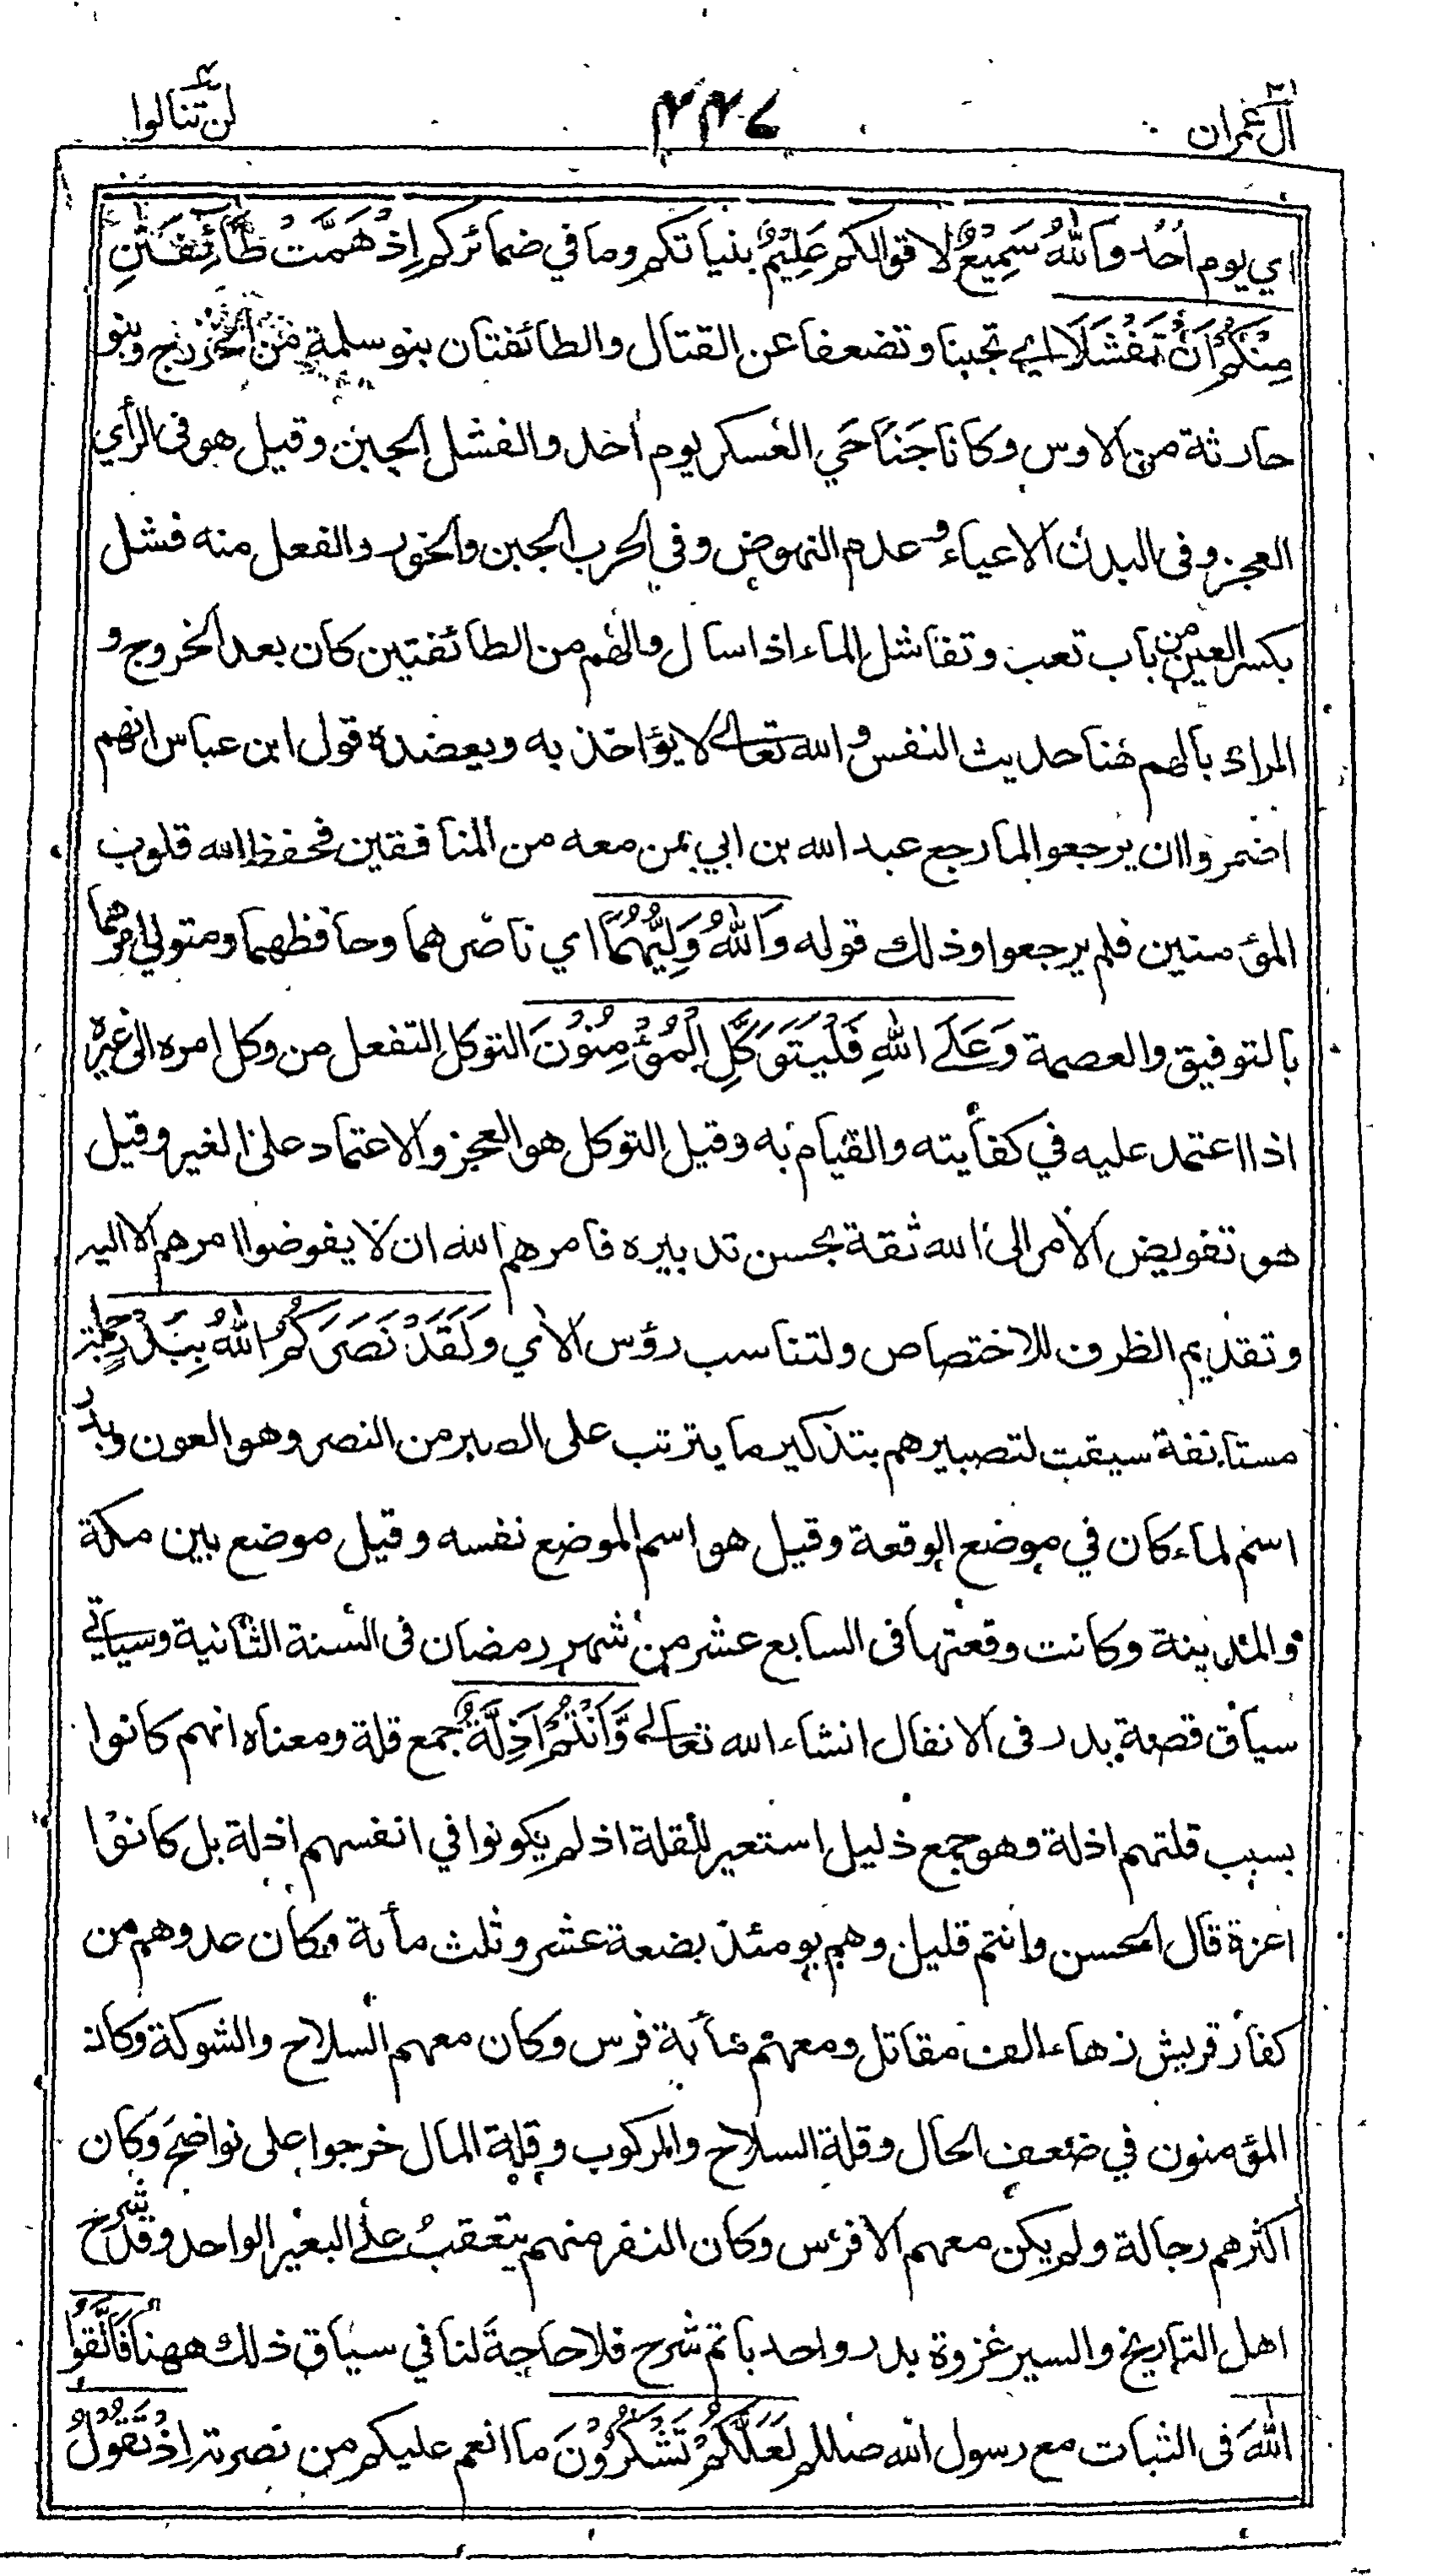 آل عمران ٤٤٧ لن تنالوا
اي يوم احد وَاللهُ سَمِيْعٌ لاقوالكم عَلِيْمٌ بنياتكم وما في ضمائركم اِذْ هَمَّتْ طَّآئِفَتٰنِ
مِنْكُمْ اَنْ تَفْشَلَا اي تجبنا وتضعفا عن القتال والطائفتان بنو سلمة من الخزرج وبنو
حارثة من الاوس وكانا جَنَاحَي العسكر يوم أحد والفشل الجبن وقيل هو فى الرأي
العجز وفى البدن الاعياء وعدم النهوض وفي الحرب الجبن والخور والفعل منه فشل
بكسر العين من باب تعب وتفاشل الماء اذا سال والهم من الطائفتين كان بعد الخروج و
المراد بالهم هنا حديث النفس والله تعالے لا يؤاخذ به ويعضده قول ابن عباس انهم
اضمروا ان يرجعوا لما رجع عبد الله بن ابي بمن معه من المنافقين فحفظ الله قلوب
المؤمنين فلم يرجعوا وذلك قوله وَاللهُ وَلِيُّهُمَا اي ناصرهما وحافظهما ومتولي امرهما
بالتوفيق والعصمة وَعَلَے اللهِ فَلْيَتَوَكَّلِ الْمُؤْمِنُوْنَ التوكل التفعل من وكل امره الى غيره
اذا اعتمد عليه في كفايته والقيام به وقيل التوكل هو العجز والاعتماد على الغير وقيل
هو تفويض الأمر الى الله ثقة بحسن تدبيره فامرهم الله ان لا يفوضوا امرهم الا اليه
وتقديم الظرف للاختصاص ولتناسب رؤس الأي وَلَقَدْ نَصَرَكُمُ اللهُ بِبَدْرٍ جملة
مستانفة سيقت لتصبيرهم بتذكير ما يترتب على الصبر من النصر وهو العون وبدر
اسم لماء كان في موضع الوقعة وقيل هو اسم الموضع نفسه وقيل موضع بين مكة
والمدينة وكانت وقعتها فى السابع عشر من شهر رمضان فى السنة الثانية وسياتي
سياق قصة بدر فى الانفال انشاء الله تعالے وَّاَنْتُمْ اَذِلَّةٌ جمع قلة ومعناه انهم كانوا
بسبب قلتهم اذلة وهو جمع ذليل استعير للقلة اذ لم يكونوا في انفسهم اذلة بل كانوا
اعزة قال الحسن وانتم قليل وهم يومئذ بضعة عشر وثلث مأية وكان عدوهم من
كفار قريش زهاء الف مقاتل ومعهم مأية فرس وكان معهم السلاح والشوكة وكان
المؤمنون في ضعف الحال وقلة السلاح والمركوب وقلة المال خرجوا على نواضح وكان
اكثرهم رجالة ولم يكن معهم الا فرس وكان النفر منهم يتعقب علے البعير الواحد وقد شرح
اهل التاريخ والسير غزوة بدر واحد باتم شرح فلا حاجة لنا في سياق ذلك ههنا فَاتَّقُوا
اللهَ فى الثبات مع رسول الله صللم لَعَلَّكُمْ تَشْكُرُوْنَ ما انعم عليكم من نصرته اِذْ تَقُوْلُ